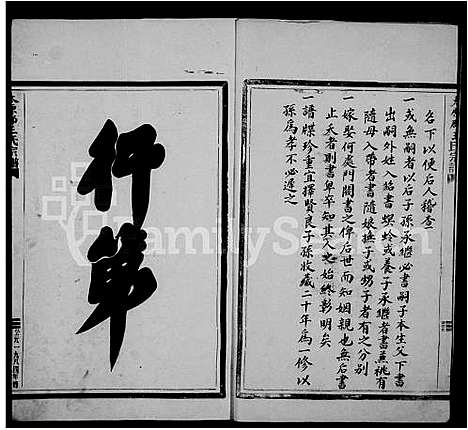 名下以便后人稽查
一或無嗣者以后子孫承繼必書嗣子本生父下書
出嗣外姓入紹書螟蛉或養子承繼者書兼祧有
隨母入帶者書隨娘撫子或甥子者有之分別
一嫁娶何處門閥書之俾后世而知姻親也無后書
止夭者則書卑卒知其人之始終彰明矣
一譜牒珍重宜擇賢良子孫收藏二十年為一修以
孫為孝不必遲之
行第
FamilySearch